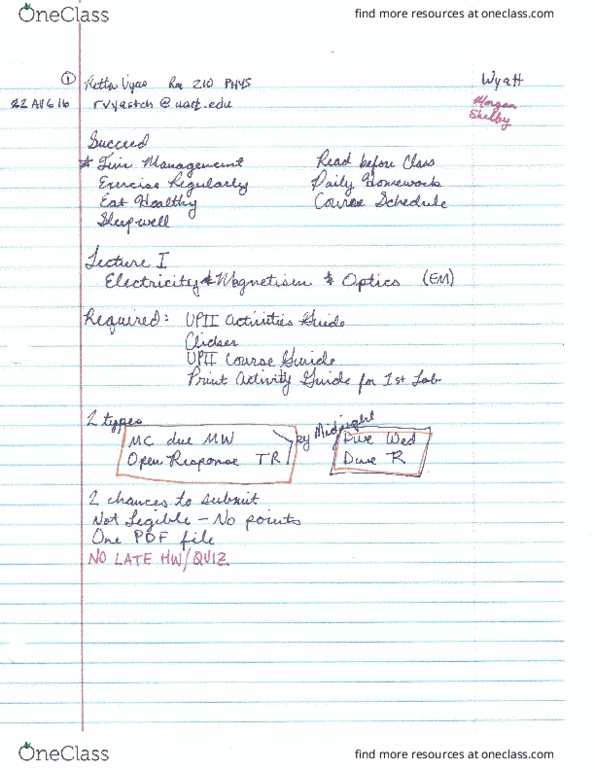 OneClass
find more resources at oneclass.com
① Retta Vyas Rm 210 PHYS
Wyatt
22 AUG 16
rvyastch@uark.edu
Morgan
Shelby
Succeed
* Time Management
Read before Class
Exercise Regularly
Daily Homework
Eat Healthy
Course Schedule
Sleep well
Lecture I
Electricity & Magnetism & Optics (EM)
Required: UPII Activities Guide
Clicker
UPII Course Guide
Print Activity Guide for 1st Lab
2 types
MC due MW
by Midnight
Due Wed
Open Response TR
Due R
2 chances to submit
Not Legible - No points
One PDF file
NO LATE HW/QUIZ
OneClass
find more resources at oneclass.com